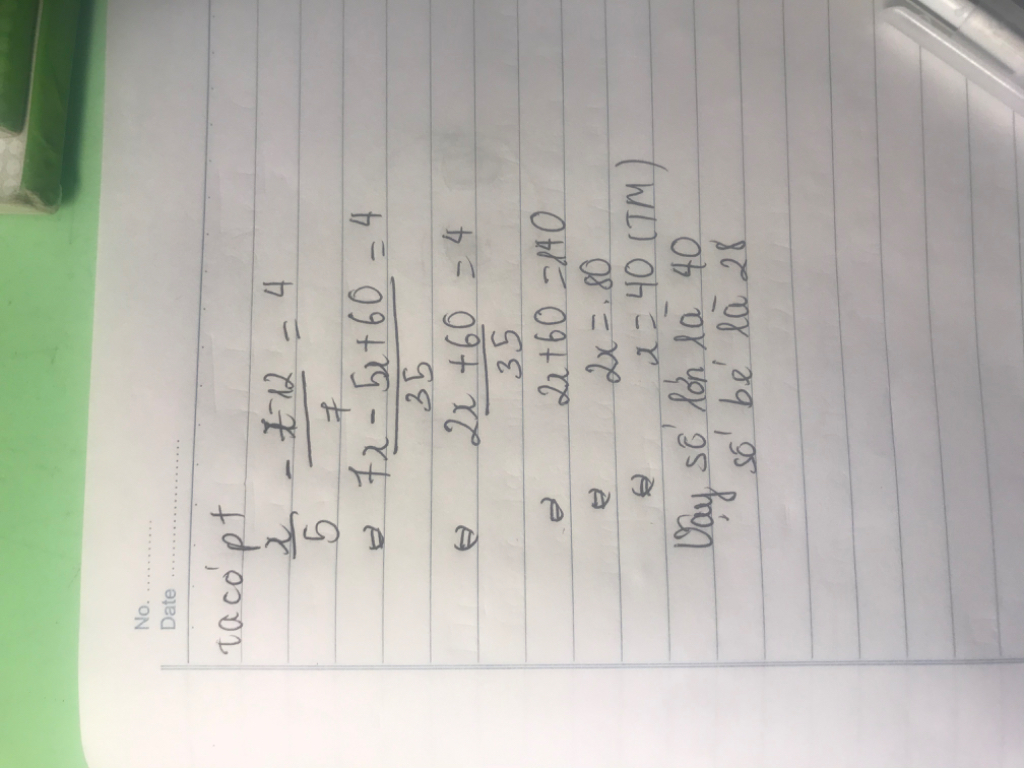 No. ............
Date .........................
Ta có pt
x/5 - x-12/7 = 4
⇔ 7x - 5x + 60/35 = 4
⇔ 2x + 60/35 = 4
⇔ 2x + 60 = 140
⇔ 2x = 80
⇔ x = 40 (TM)
Vậy số lớn là 40
số bé là 28